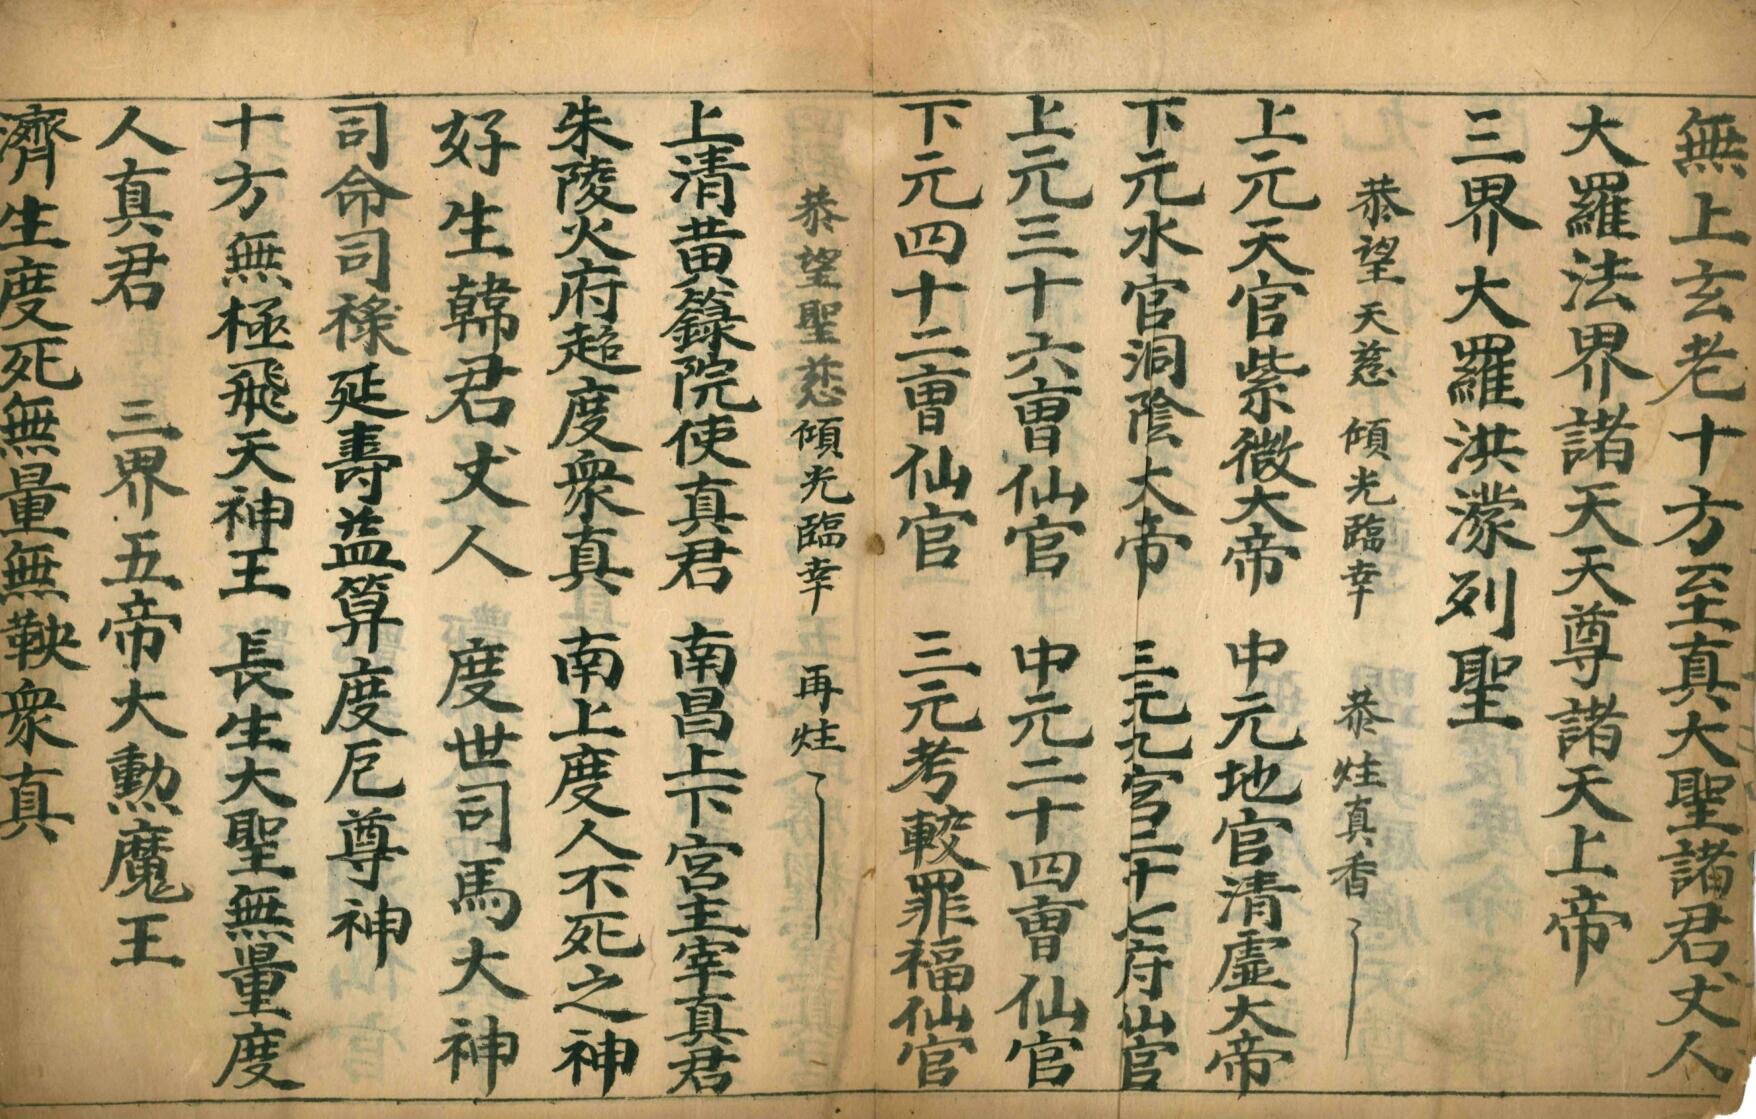 無上玄老十方至真大聖諸君丈人
大羅法界諸天天尊諸天上帝
三界大羅洪濛列聖
恭望天慈傾光臨幸 恭炷真香
上元天官紫微大帝 中元地官清虛大帝
下元水官洞陰大帝 三元九宮二十七府仙官
上元三十六曹仙官 中元二十四曹仙官
下元四十二曹仙官 三元考較罪福仙官
恭望聖慈傾光臨幸 再炷
上清黃籙院使真君 南昌上下宮主宰真君
朱陵火府超度衆真 南上度人不死之神
好生韓君丈人 度世司馬大神
司命司祿延壽益算度厄尊神
十方無極飛天神王 長生大聖無量度
人真君 三界五帝大勳魔王
濟生度死無量無鞅衆真